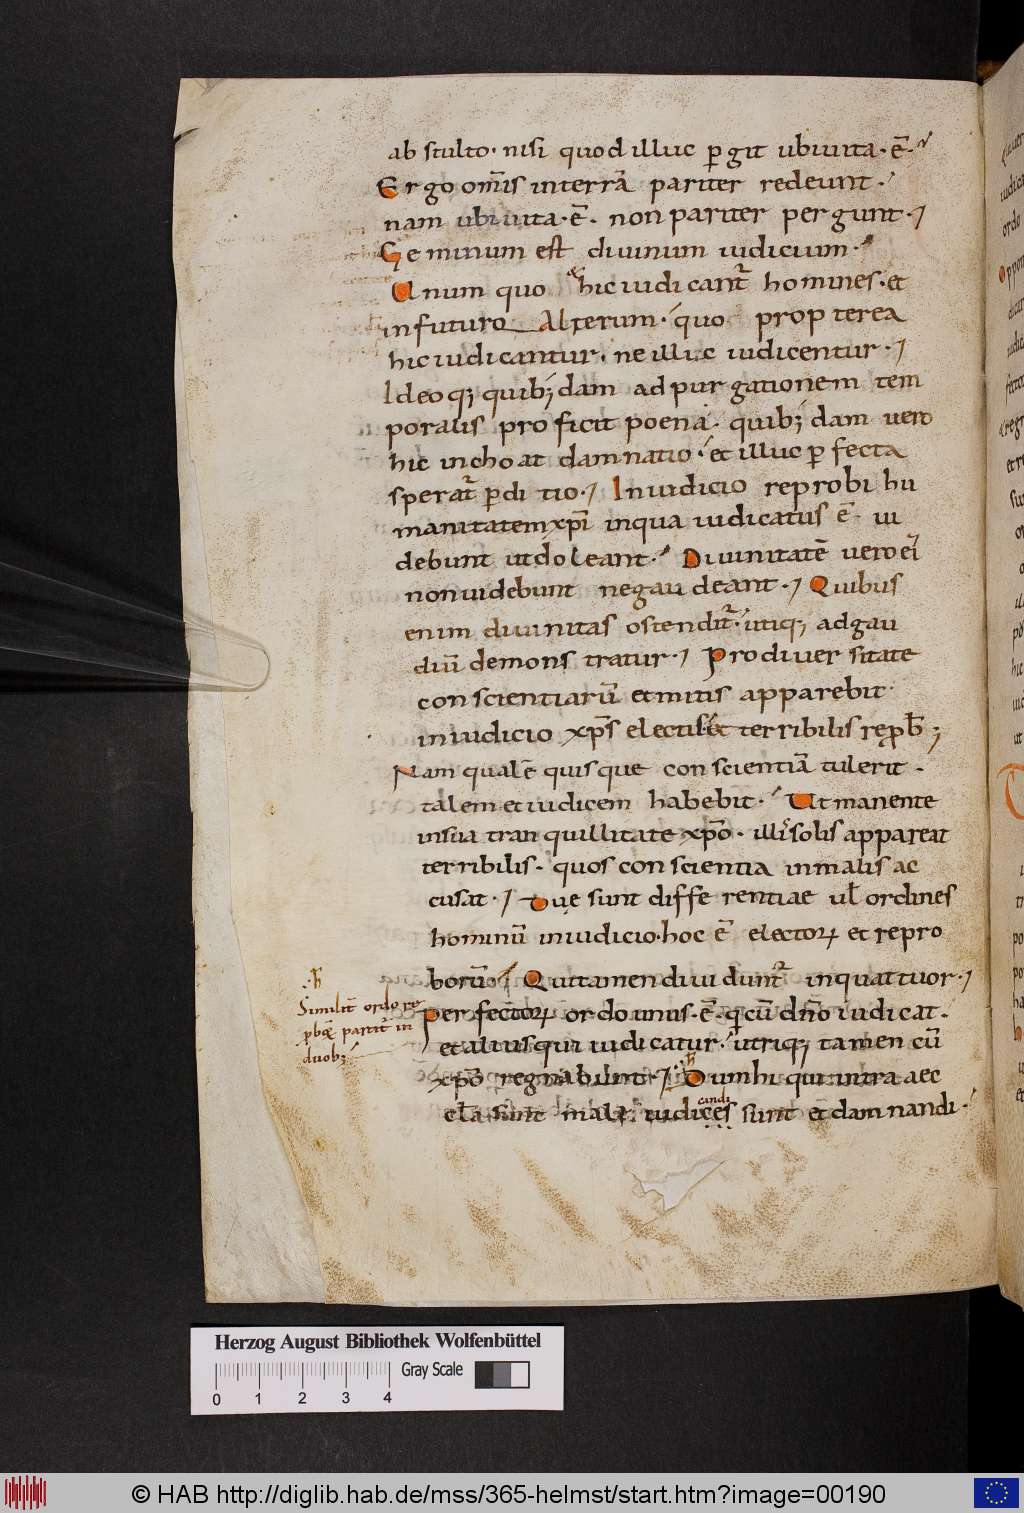 ab stulto· nisi quod illuc ꝑgit ubi uita·ē·
Ergo om̅is in terrā pariter redeunt·
nam ubi uita·ē· non pariter pergunt·
Geminum est diuinum iudicium·
Unum quo & hic iudicant᷑ homines· et
in futuro Alterum· quo propterea
hic iudicantur· ne illuc iudicentur·
Ideoq; quib;dam ad purgationem tem
poralis proficit poena· quib;dam uero
hic inchoat damnatio· et illuc ꝑfecta
sperat᷑ ꝑditio· In iudicio reprobi hu
manitatem xp̅i in qua iudicatus ē· ui
debunt ut doleant· Diuinitatē uero ei
non uidebunt ne gaudeant· Quibus
enim diuinitas ostendit᷑· utiq; ad gau
diū demonstratur· Pro diuersitate
conscientiarū et mitis apparebit
in iudicio xp̅s electis· et terribilis rep̱b̅;
Nam qualē quisque conscientiā tulerit·
talem et iudicem habebit· Ut manente
in sua tranquillitate xp̅o· illis solis appareat
terribilis· quos conscientia in malis ac
cusat· Due sunt differentiae ul̅ ordines
hominū in iudicio· hoc ē electoꝝ et repro
borū· Qui tamen diuidunt᷑ in quattuor·
Perfectoꝝ ordo unus·ē· qi cū dn̅o iudicat·
et alius qui iudicatur· utriq; tamen cū
xp̅o regnabunt· Dum hi qui intra aec
cl̅a sunt male iudices sunt et damnandi·
candi
Similit̅ ordo re
ꝓboꝝ partit᷑ in
duob;
Herzog August Bibliothek Wolfenbüttel
Gray Scale
0 1 2 3 4
© HAB http://diglib.hab.de/mss/365-helmst/start.htm?image=00190